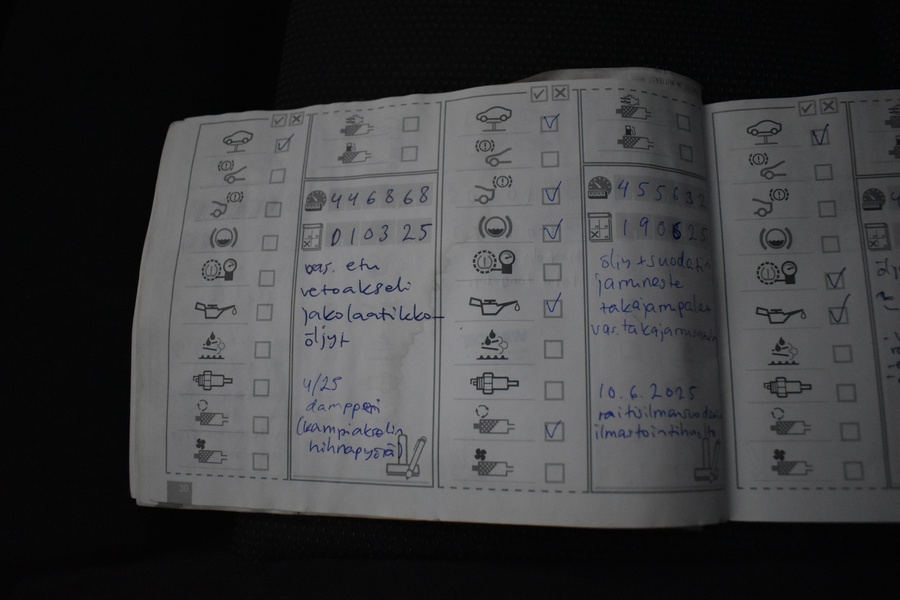 446868
010325
vas. etu
vetoakseli
jakolaatikko-
öljyt
4/25
damppari
(kampiakselin
hihnapyörä)
20
455632
190625
öljy+suodatin
jarruneste
takajarrupalat
10.6.2025
raitisilmansuodatin
ilmastointihuolto
4